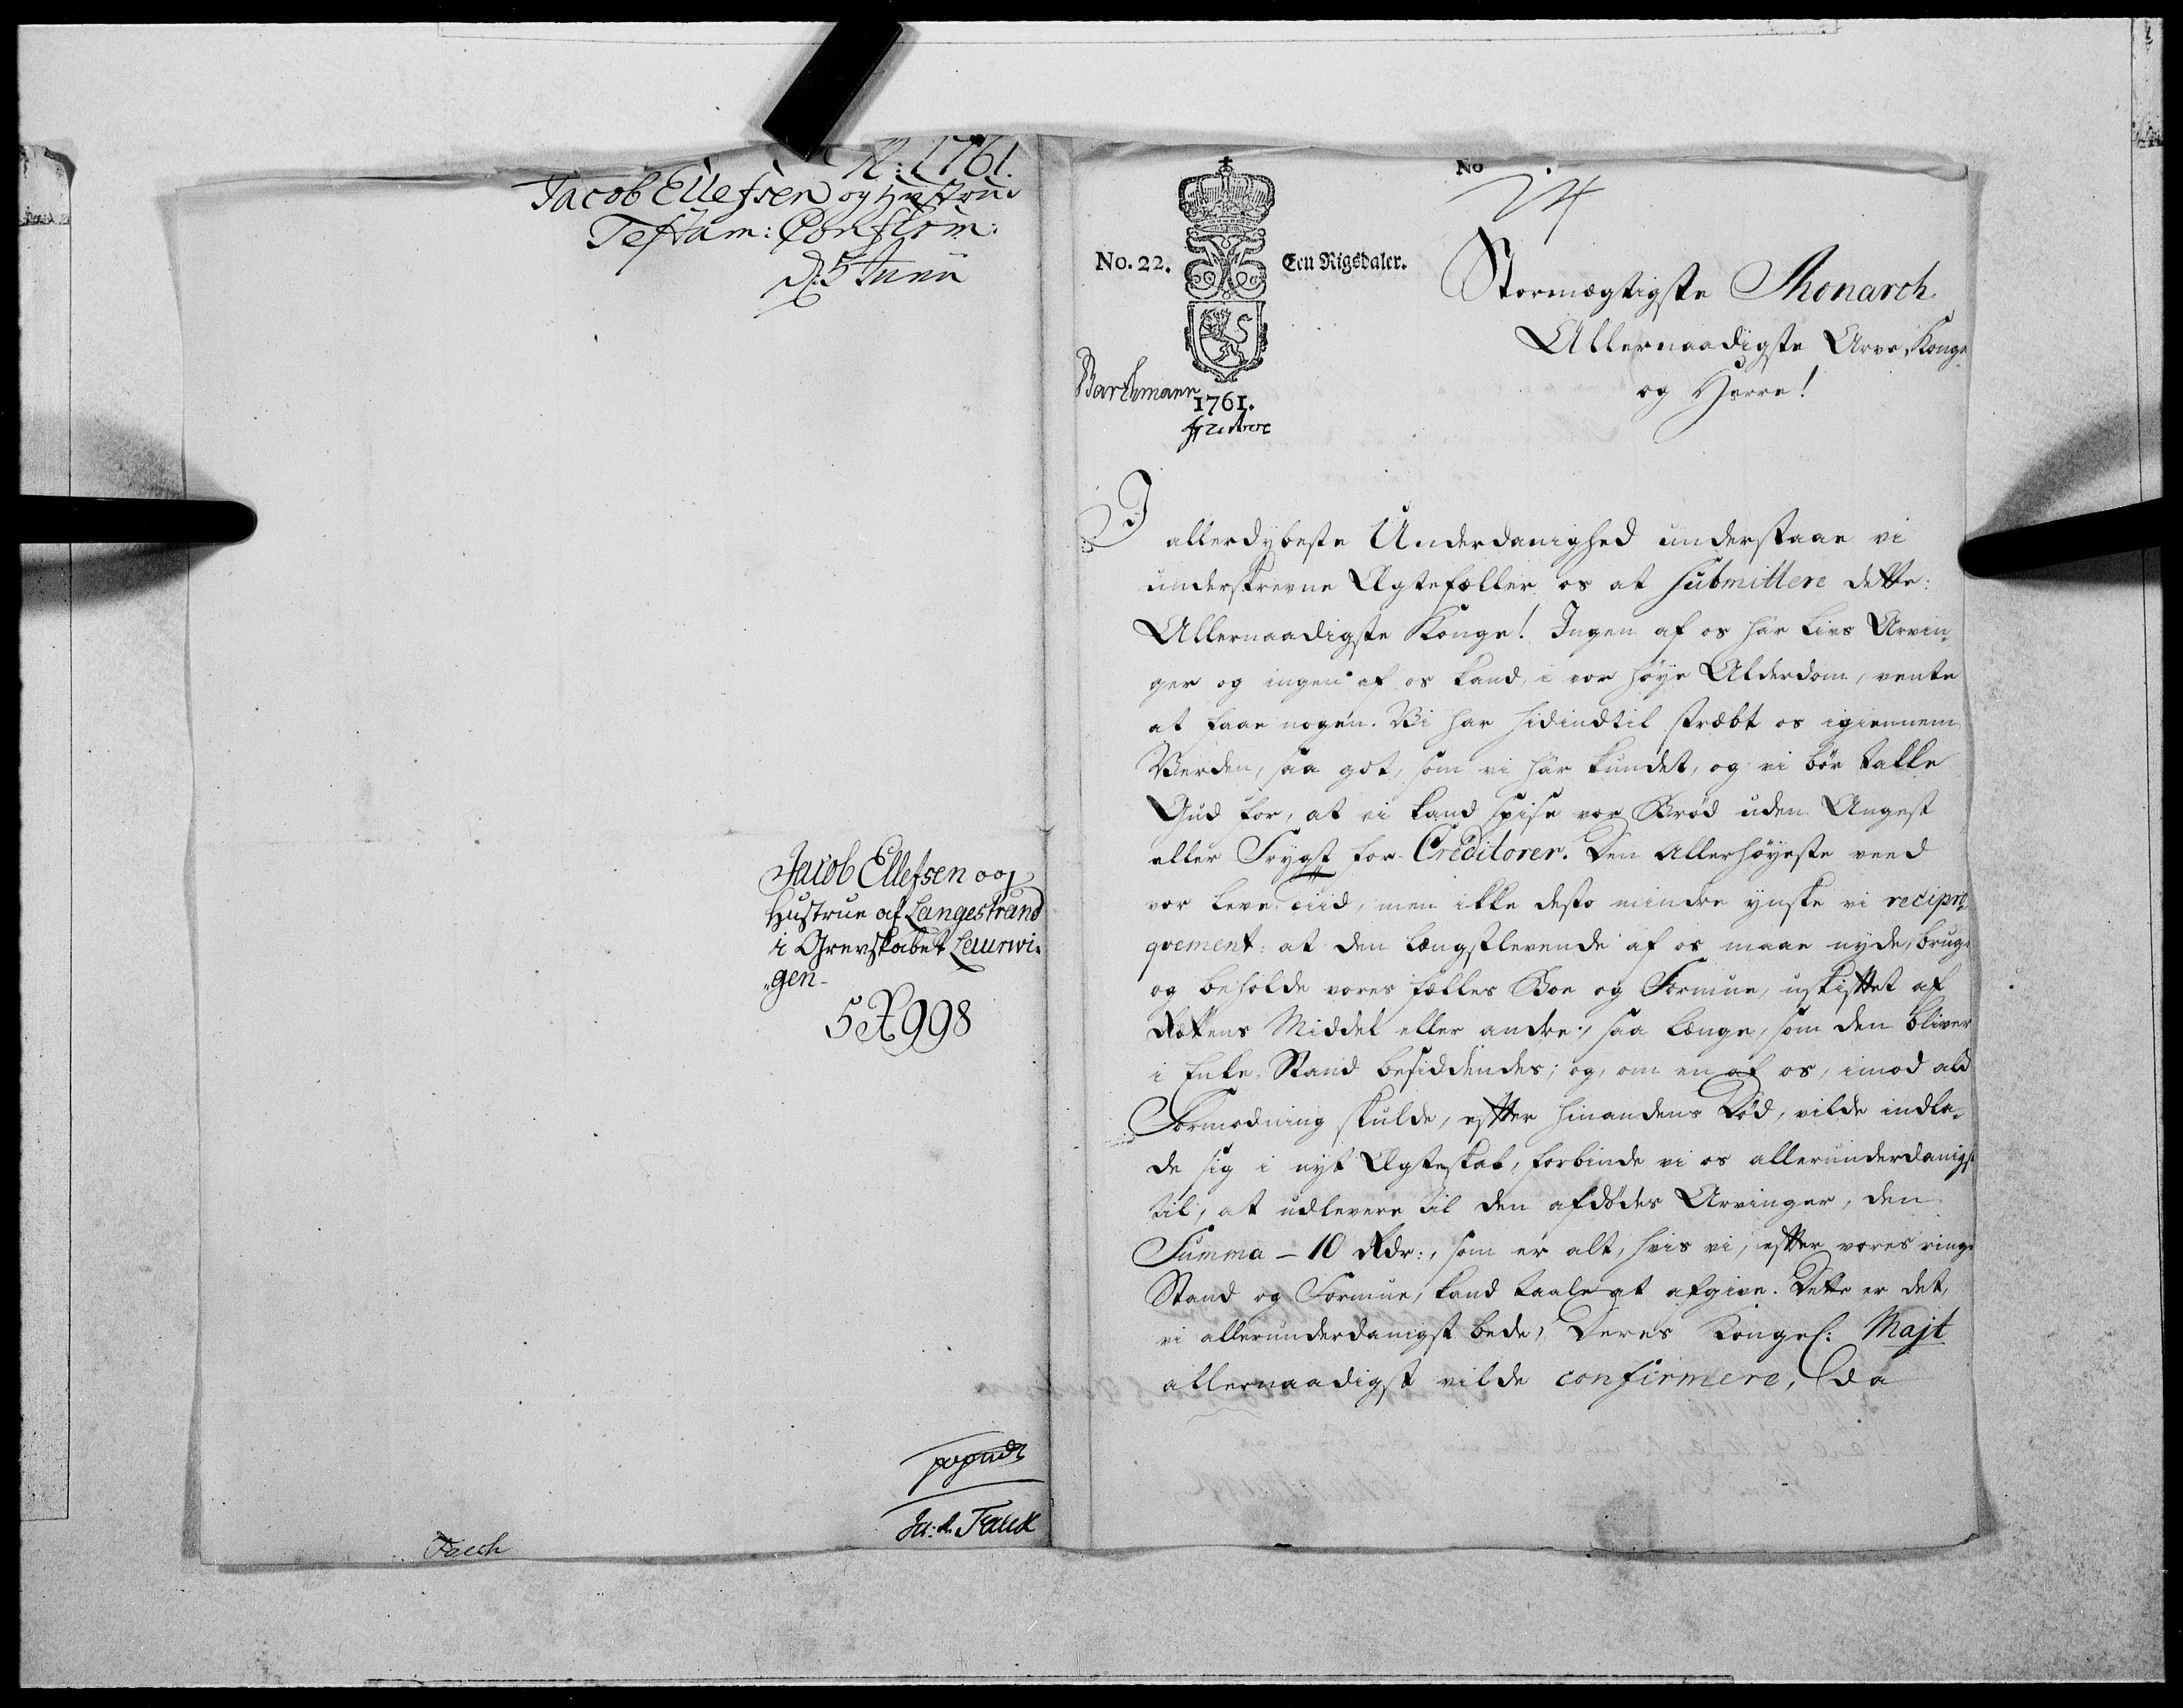 A: 1761.
Jacob Ellefsen og Hustrue
Testam: Confirm:
d: 5 Junii
Jacob Ellefsen og
Hustrue af Langestrand
i Grevskabet Laurwi-
„gen-
5 R 998
Ja: A. Falck
Falch
No
No. 22.
Een Rigsdaler.
Barthmann
1761.
Stormægtigste Monarch
Allernaadigste Arve-Konge
og Herre!
I allerdybeste Underdanighed understaae vi
underskrevne Ægtefæller os at submittere dette:
Allernaadigste Konge! Ingen af os har Livs Arvin-
ger og ingen af os kand, i vor høye Alderdom, vente
at faae nogen. Vi har hidindtil stræbt os igiennem
Verden, saa got, som vi har kundet, og vi bør takke
Gud for, at vi kand spise vor Brød uden Angest
eller Frygt for Creditorer. Den Allerhøyeste veed
vor Leve-Tiid, men ikke desto mindre ynske vi recipro-
qvement: at den længstlevende af os maae nyde, bruge
og beholde vores fælles Boe og Formue, uskiftet af
Rettens Middel eller andre, saa længe, som den bliver
i Enke-Stand besiddendes; og, om en af os, imod ald
Formodning skulde, efter hinandens Død, vilde indla-
de sig i nyt Ægteskab, forbinde vi os allerunderdanigst
til, at udlevere til den afdødes Arvinger, den
Summa - 10 Rdr:, som er alt, hvis vi, efter vores ringe
Stand og Formue, kand taale at afgive. Dette er det,
vi allerunderdanigst bede, Deres Kongel: Majt
allernaadigst vilde confirmere, da